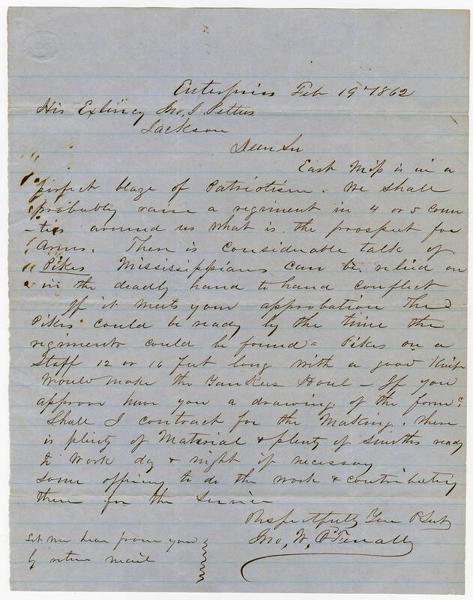 Enterprise Feb 19th 1862
His Exlincy Jno. J. Pettus
Jackson
Dear Sir
East Miss is in a
perfect blaze of Patriotism. We shall
probably raise a regiment in 4 or 5 coun
-ties around us what is the prospect for
arms. There is considerable talk of
Pikes Mississippians can be relied on
in the deadly hand to hand conflict
If it meets your approbation the
Pikes could be ready by the time the
regiment could be found - Pikes on a
Staff 12 or 16 feet long with a good Knife
would make the Yankees Howl - If you
approve have you a drawing of the form?
Shall I contract for the Making. There
is plenty of Material & plenty of smiths ready
to work day & night if necessary
Some offering to do the work & contributing
them for the Service
Respectfully Your Obt Svt
Jno, W, O'Ferrall
Let me hear from you
by return mail